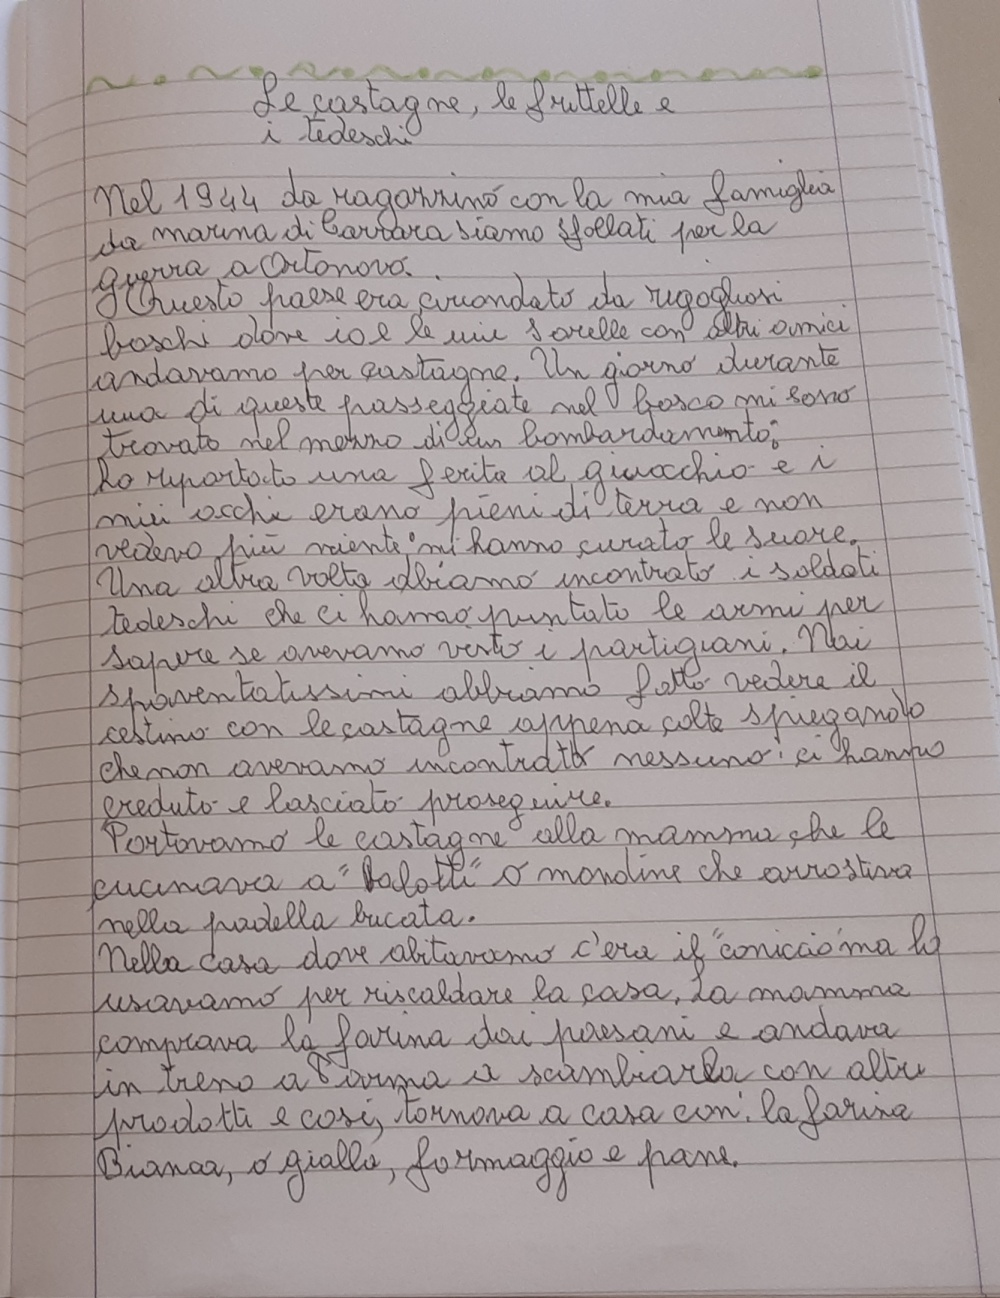 Le castagne, le frittelle e
i tedeschi
Nel 1944 da ragazzino con la mia famiglia
da marina di Carrara siamo sfollati per la
guerra a Ortonovo.
Questo paese era circondato da rigogliosi
boschi dove io e le mie sorelle con altri amici
andavamo per castagne. Un giorno durante
una di queste passeggiate nel bosco mi sono
trovato nel mezzo di un bombardamento:
ho riportato una ferita al ginocchio e i
miei occhi erano pieni di terra e non
vedevo più niente: mi hanno curato le suore.
Una altra volta abbiamo incontrato i soldati
tedeschi che ci hanno puntato le armi per
sapere se avevamo visto i partigiani. Noi
spaventatissimi abbiamo fatto vedere il
cestino con le castagne appena colte spiegando
che non avevamo incontrato nessuno: ci hanno
creduto e lasciato proseguire.
Portavamo le castagne alla mamma, che le
cucinava a "balotti" o mondine che arrostiva
nella padella bucata.
Nella casa dove abitavamo c'era il "coniccio" ma lo
usavamo per riscaldare la casa. La mamma
comprava la farina dai paesani e andava
in treno a Parma a scambiarla con altri
prodotti e così, tornava a casa con la farina
Bianca, o gialla, formaggio e pane.